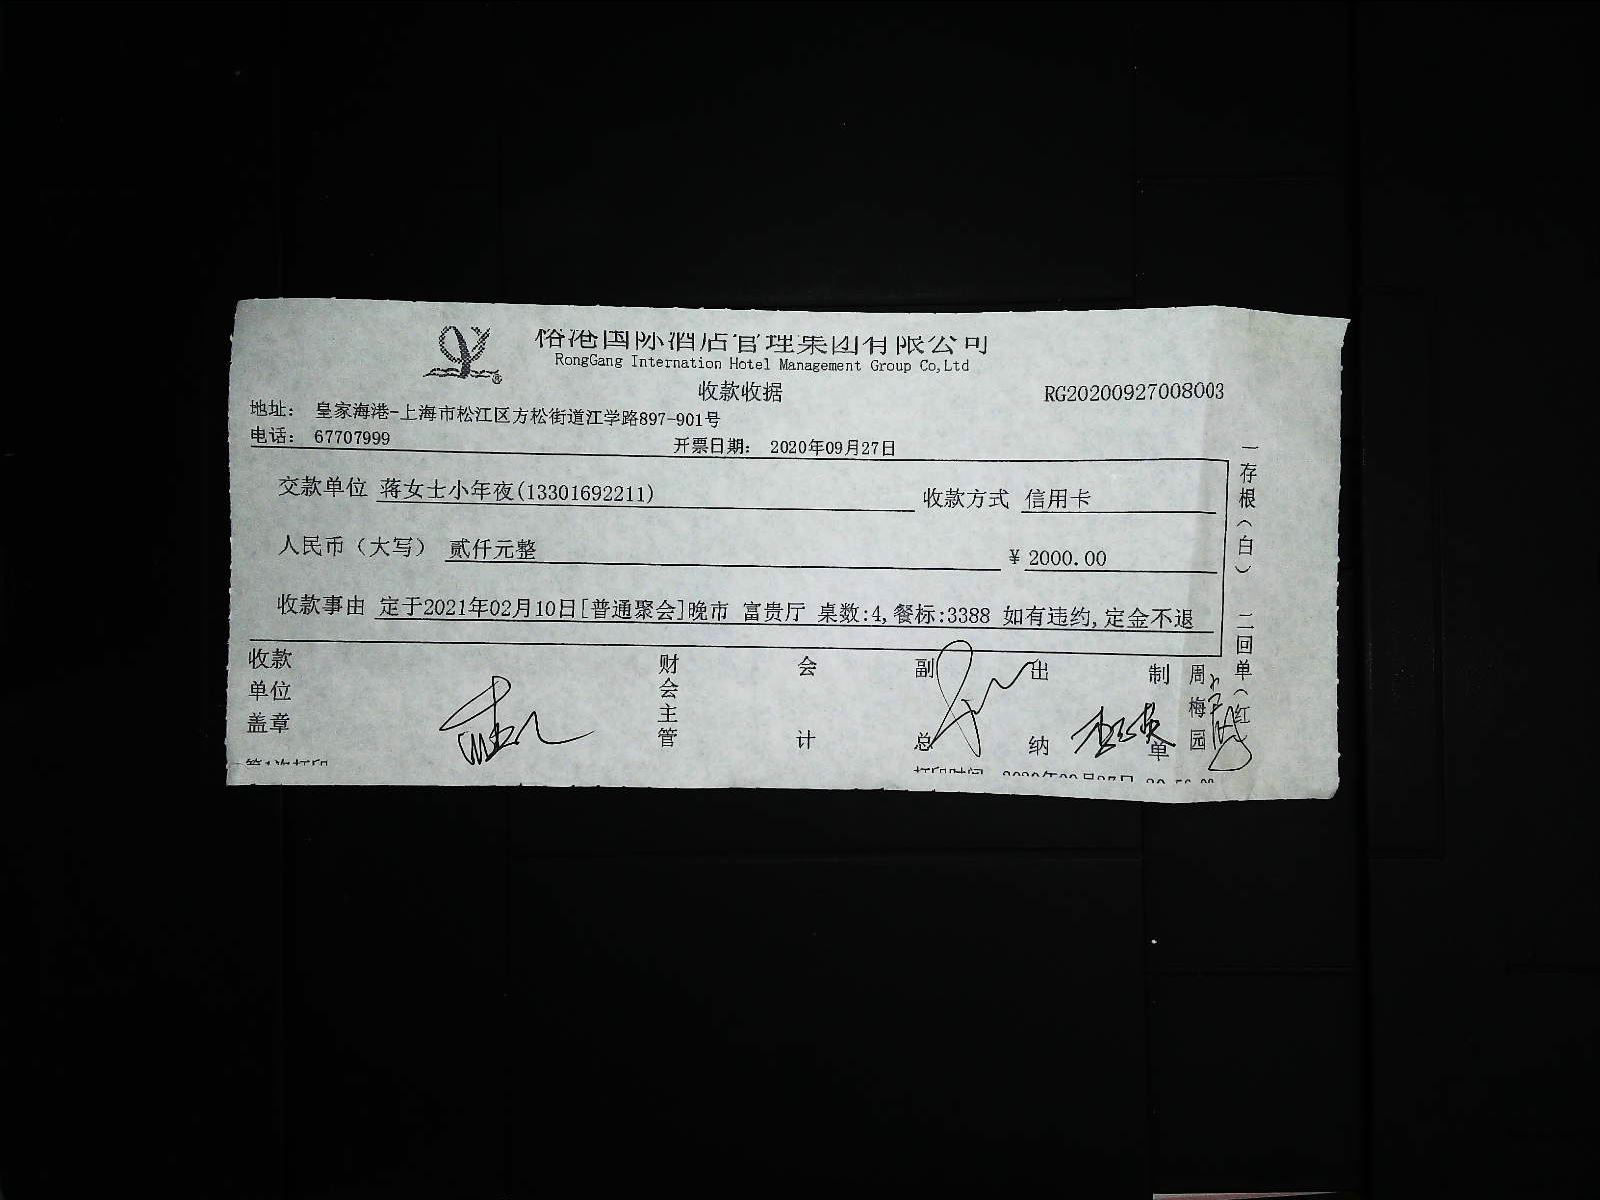 榕港国际酒店管理集团有限公司
RongGang Internation Hotel Management Group Co,Ltd
收款收据
RG20200927008003
地址： 皇家海港-上海市松江区方松街道江学路897-901号
电话： 67707999
开票日期： 2020年09月27日
交款单位 蒋女士小年夜(13301692211)
收款方式 信用卡
人民币（大写） 贰仟元整
¥ 2000.00
收款事由 定于2021年02月10日[普通聚会]晚市 富贵厅 桌数:4,餐标:3388 如有违约,定金不退
一存根（白） 二回单（红）
收款单位盖章
财会主管
会计
副总
出纳
制单
周梅园
第1次打印
打印时间 2020年09月27日